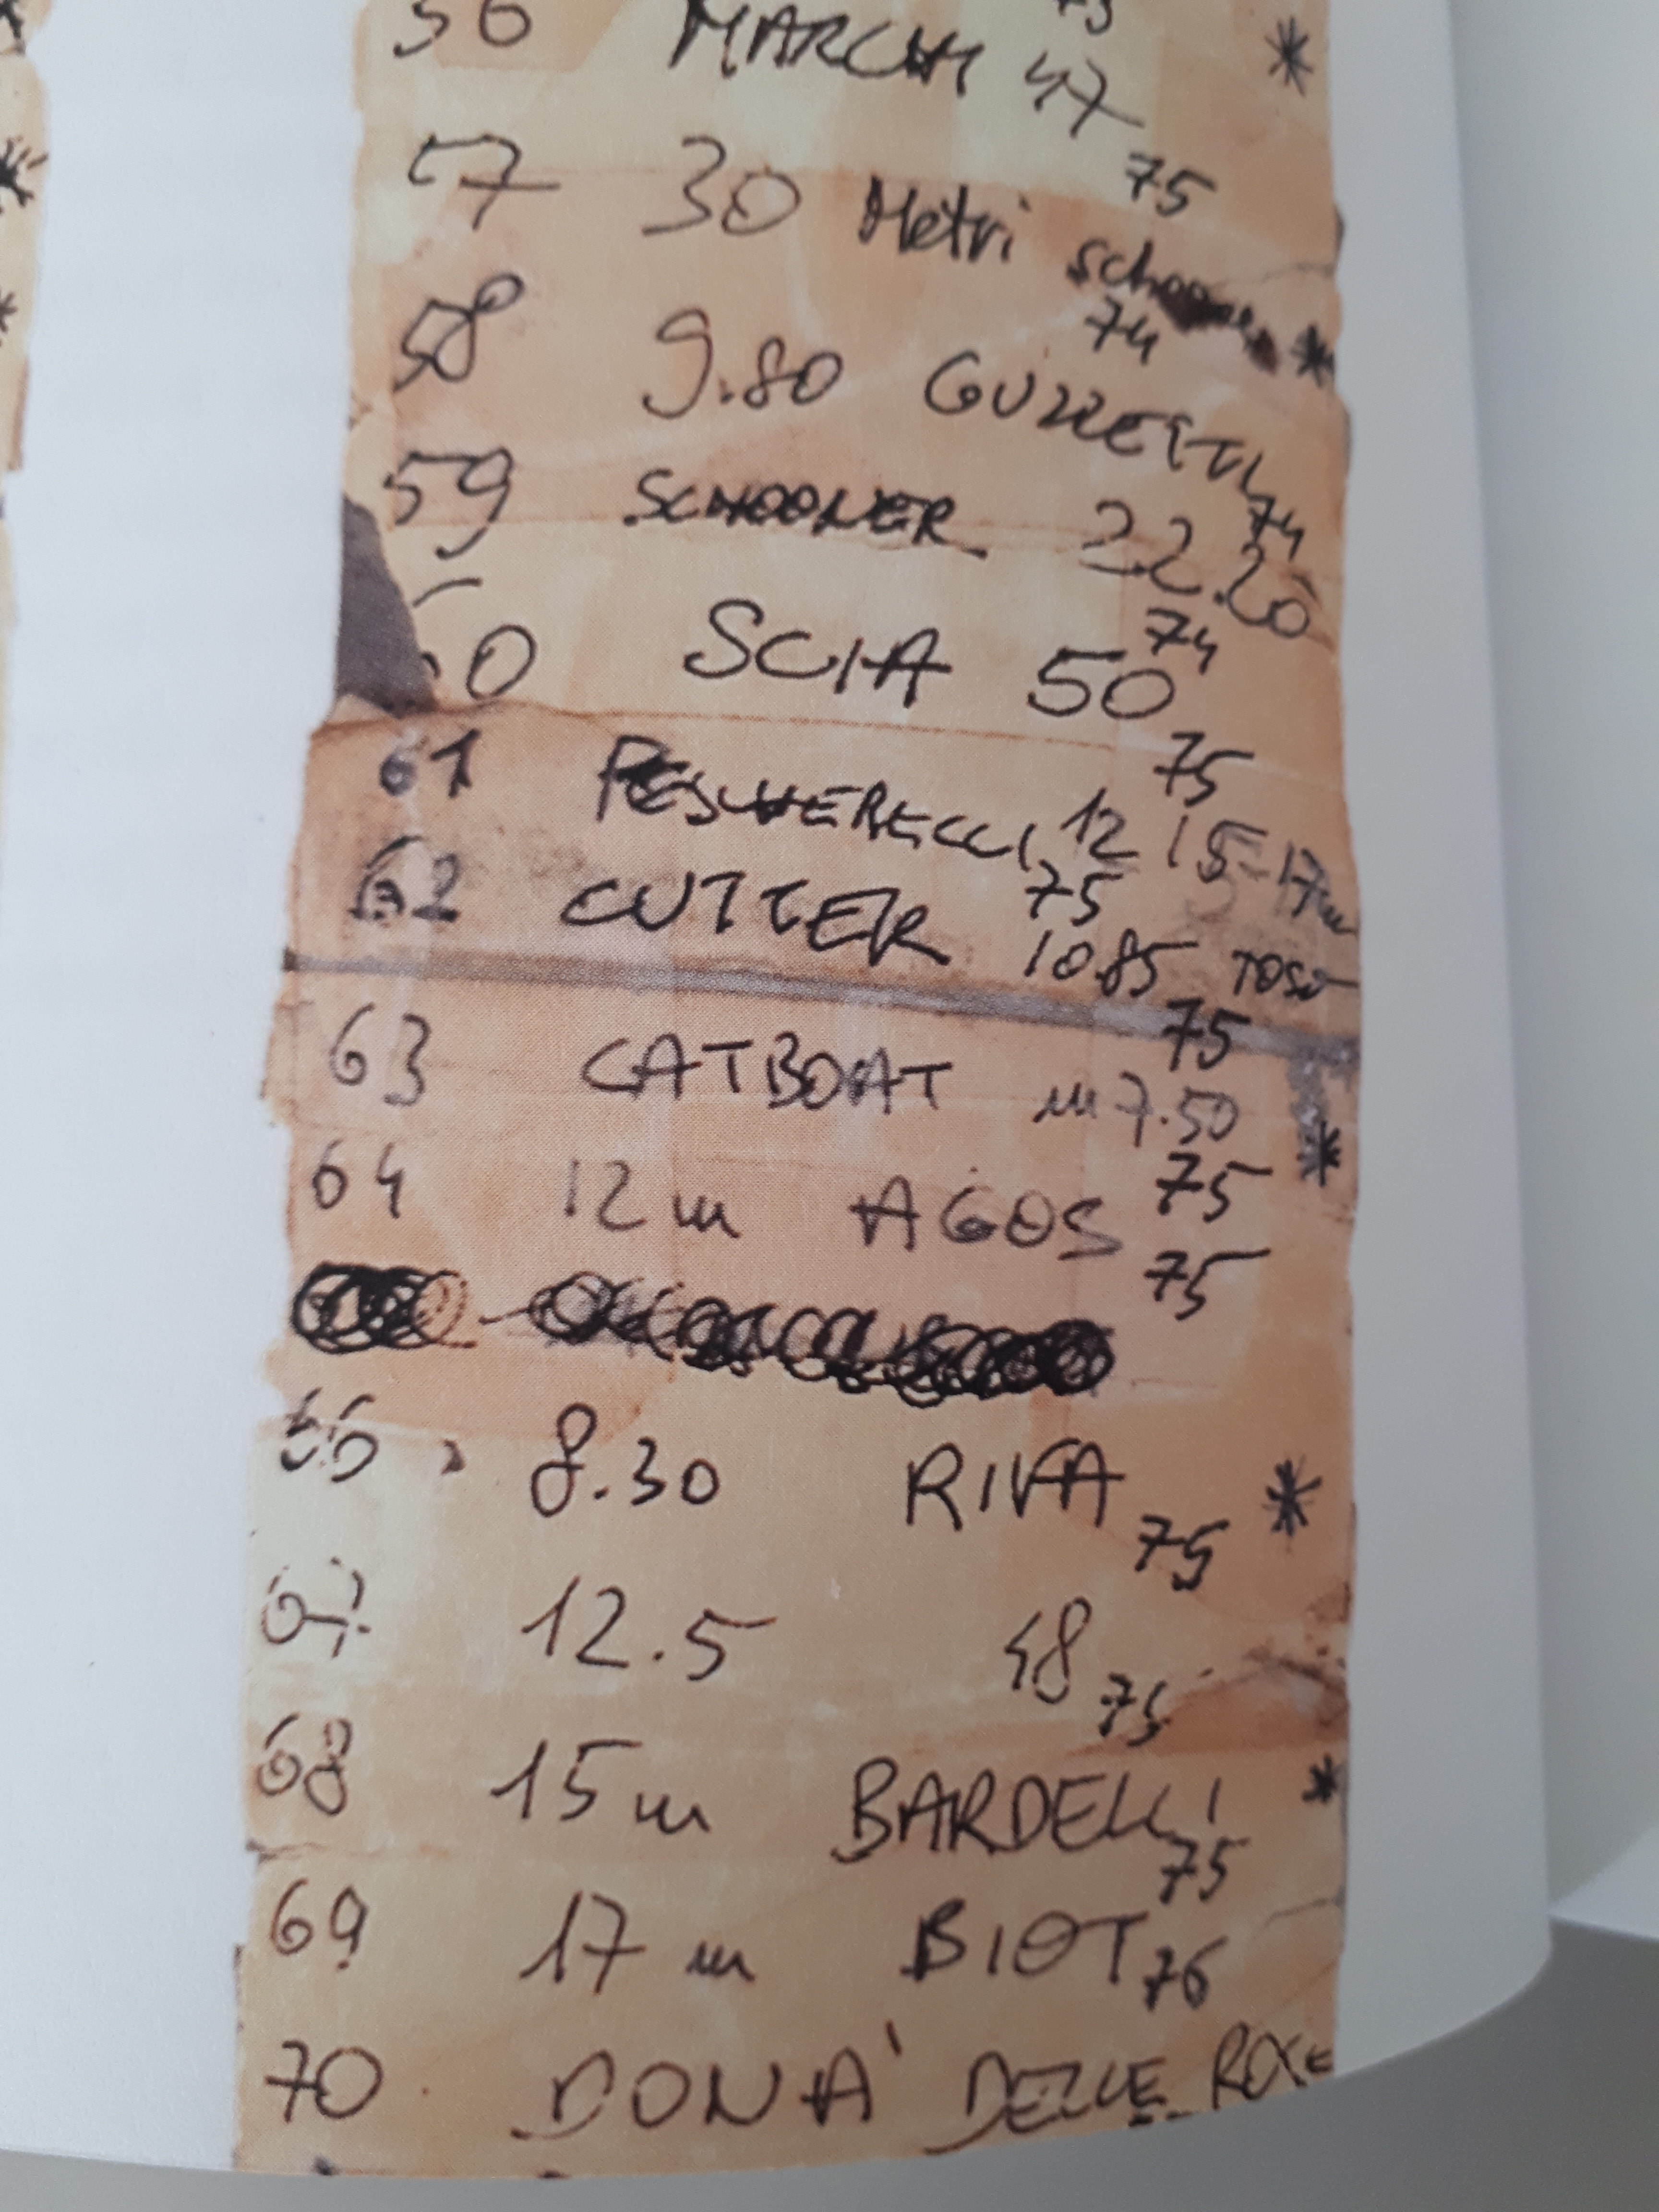 56 MARCHI 47
75
57 30 Metri schooner
74
58 9.80 GUZZETTI
74
59 SCHOONER 22.20
74
60 SCIA 50
75
61 PESCHERECCI 12 15-17m
75
62 CUTTER 10.85 TOSO
75
63 CATBOAT m 7.50
75
64 12 m AGOS
75
66 8.30 RIVA
75
67 12.5 48
75
68 15 m BARDELLI
75
69 17 m BIOT
76
70 DONA' DELLE ROSE